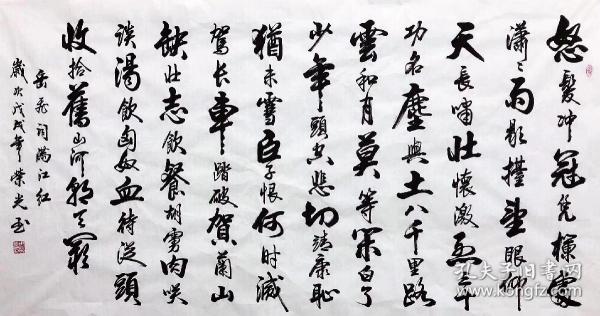 怒髮冲冠凭欄處
瀟〻雨歇擡望眼仰
天長嘯壯懷激烈三十
功名塵與土八千里路
雲和月莫等閑白了
少年頭空悲切靖康恥
猶未雪臣子恨何时滅
駕长車踏破賀蘭山
缺壯志飢餐胡虜肉笑
談渴飲匈奴血待從頭
收拾舊山河朝天闕
岳飛詞满江红
歲次戊戌年榮光
孔夫子旧书网